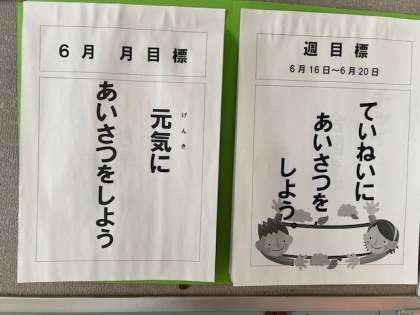 6月 月目標
元気に
げんき
あいさつをしよう
週目標
6月16日～6月20日
ていねいに
あいさつを
しよう